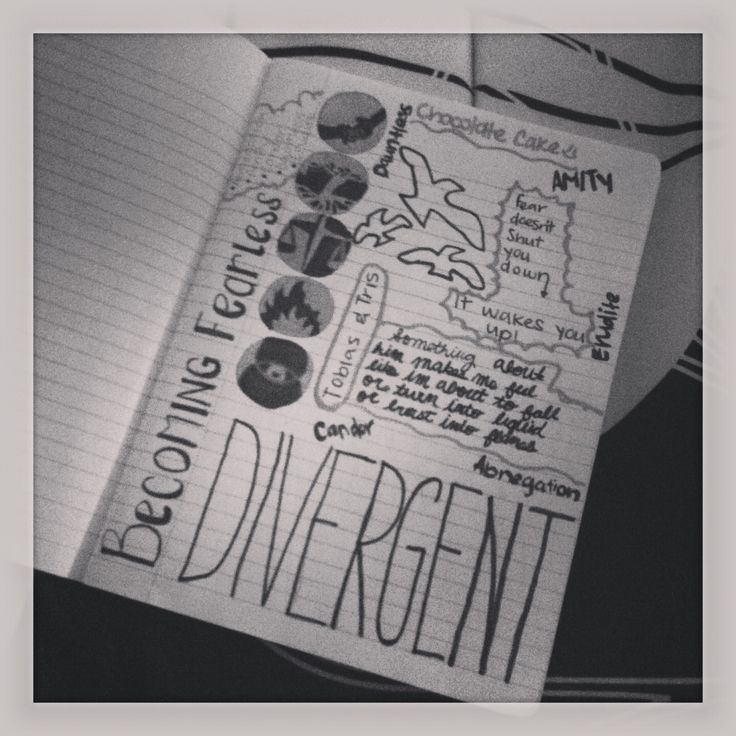 Chocolate Cake
Dauntless
AMITY
Fear
doesn't
Shut
you
down,
It wakes you
up!
Erudite
BECOMING Fearless
Tobias & Tris
Something about
him makes me feel
like im about to fall
or turn into liquid
or burst into flames
Candor
Abnegation
DIVERGENT